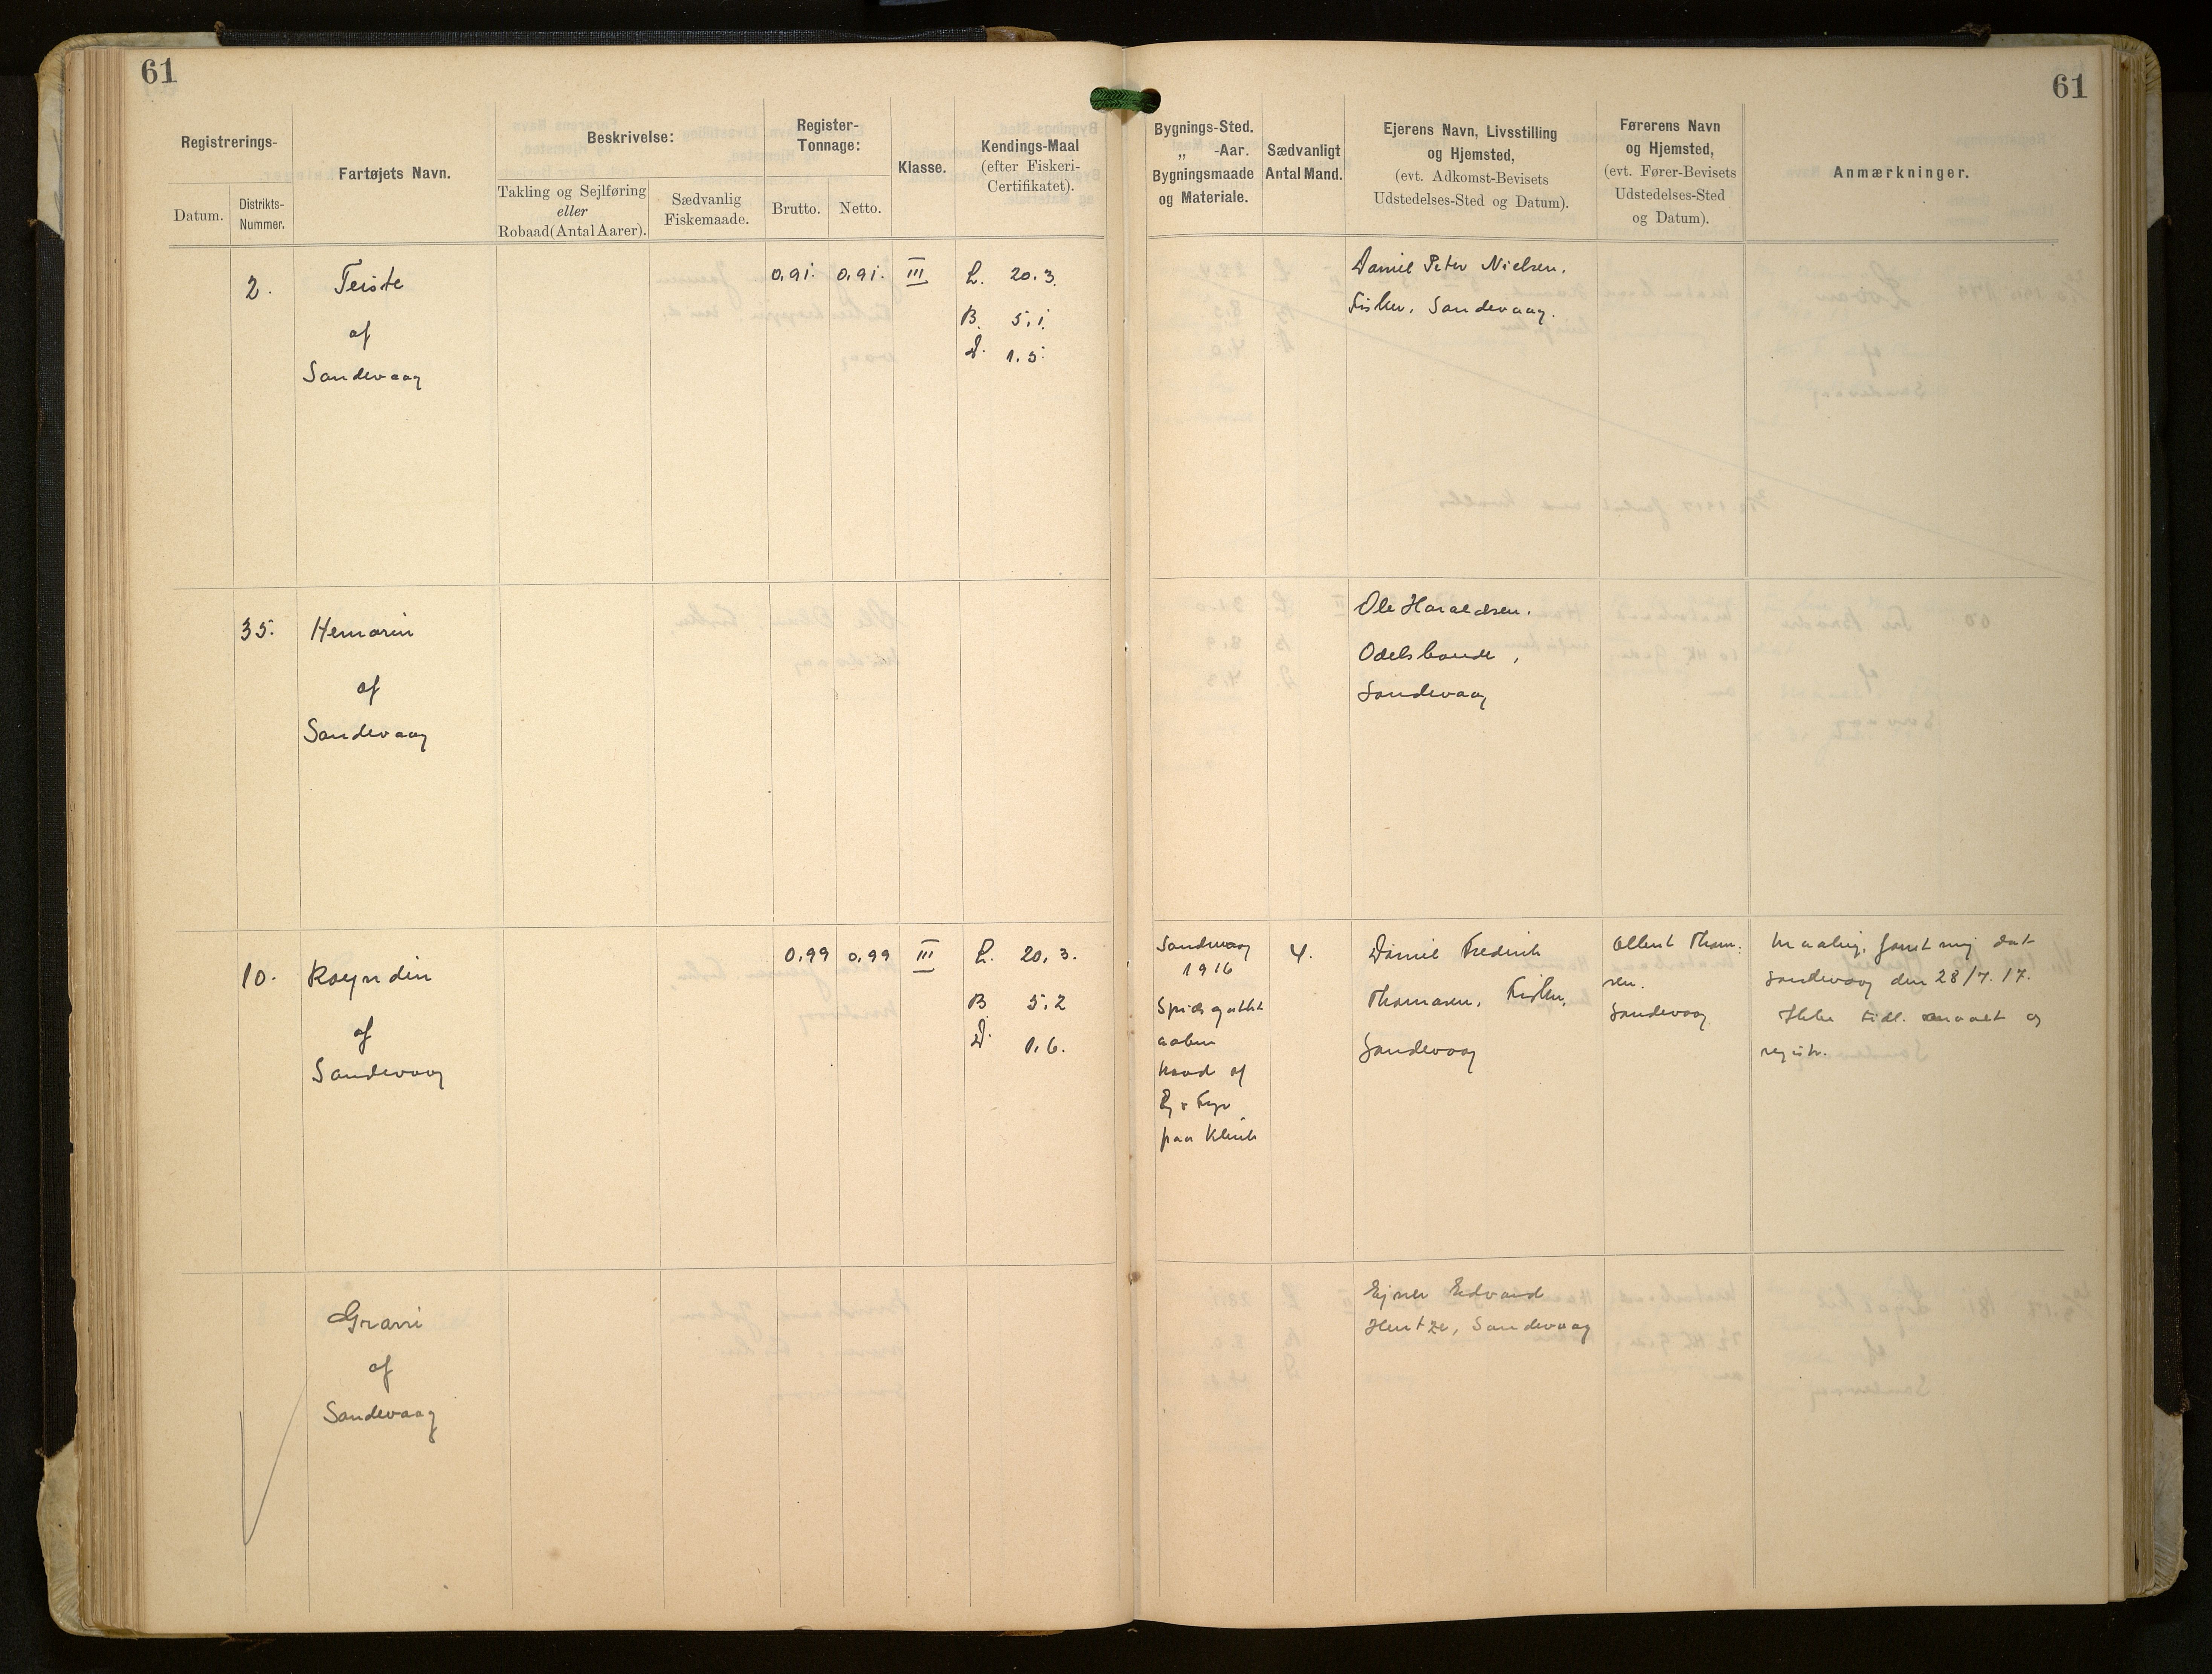 61
61
Registrerings-
Datum.
Distrikts-
Nummer.
Fartøjets Navn.
Beskrivelse:
Takling og Sejlføring
eller
Robaad (Antal Aarer).
Sædvanlig
Fiskemaade.
Register-
Tonnage:
Brutto.
Netto.
Klasse.
Kendings-Maal
(efter Fiskeri-
Certifikatet).
Bygnings-Sted.
„ -Aar.
Bygningsmaade
og Materiale.
Sædvanligt
Antal Mand.
Ejerens Navn, Livsstilling
og Hjemsted,
(evt. Adkomst-Bevisets
Udstedelses-Sted og Datum).
Førerens Navn
og Hjemsted,
(evt. Fører-Bevisets
Udstedelses-Sted
og Datum).
Anmærkninger.
2.
Teiste
af
Sandevaag
0,91. 0,91. III
L. 20.3.
B. 5,1.
D. 1.5.
Daniel Peter Nielsen.
Fisker, Sandevaag.
35.
Hemarin
af
Sandevaag
Ole Haraldsen.
Odelsbonde,
Sandevaag
10.
Royndin
af
Sandevaag
0,99 0,99 III
L. 20,3.
B 5,2
D. 1.6.
Sandevaag
1916
Spidsgattet
aaben
baad af
Eg & Fyr
paa Klink
4.
Daniel Fredrik
Thomasen, Fisker,
Sandevaag
Thom-
sen.
Sandevaag
Maaling
Sandevaag den 28/7. 17.
Ikke tidl. maalt og
registr.
Grani
af
Sandevaag
Ejner Edvard
Hentze, Sandevaag